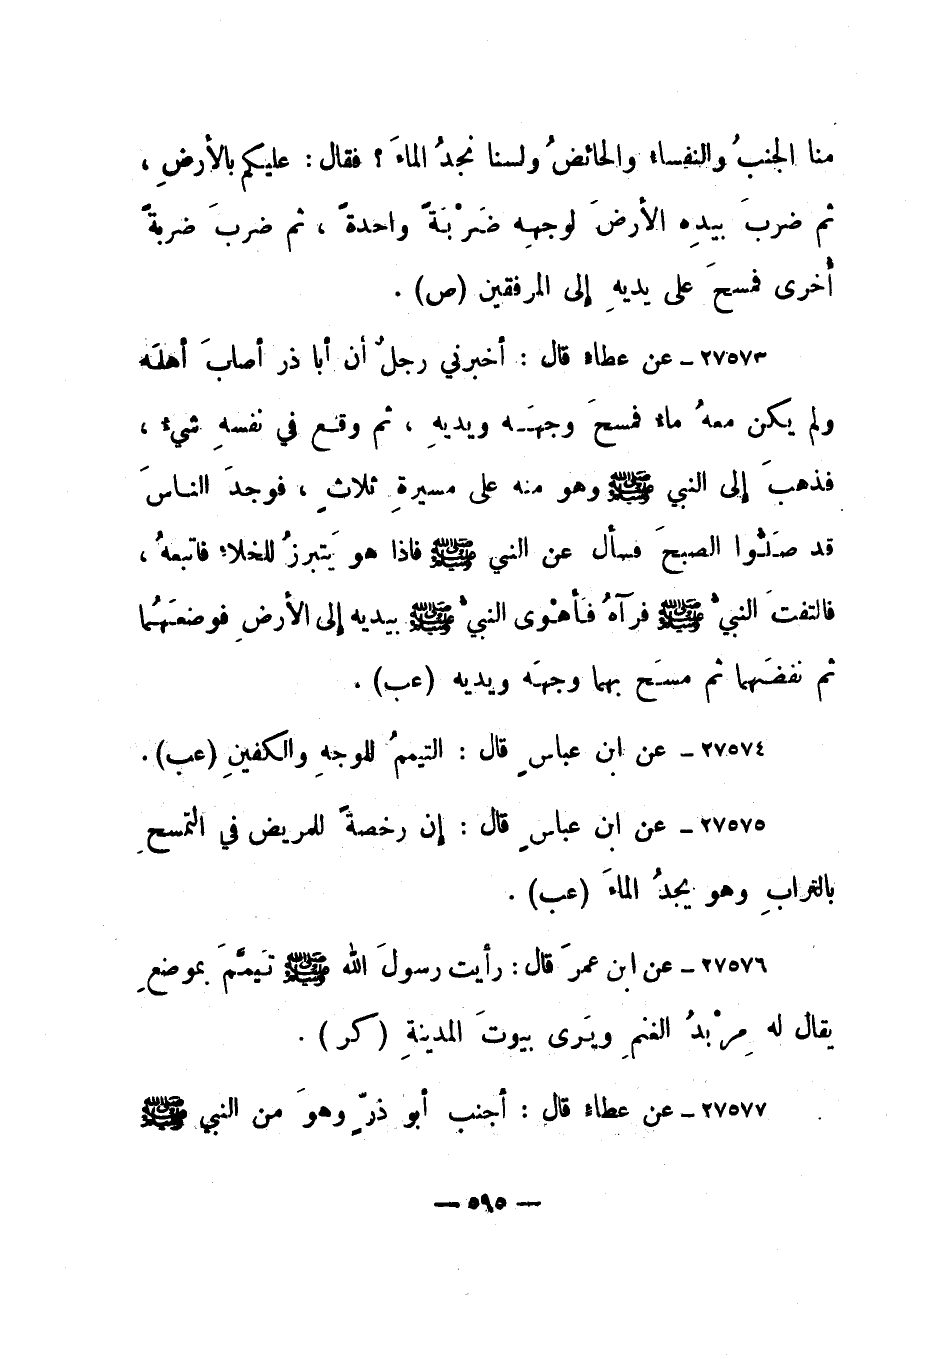 منا الجنبُ والنفساء والحائضُ ولسنا نجدُ الماءَ ؟ فقال : عليكم بالأرضِ ،
ثم ضربَ بيدِه الأرضَ لوجهِه ضَرْبَةً واحدةً ، ثم ضربَ ضربةً
أخرى فمسحَ على يديهِ إلى المرفقين (ص) .
٢٧٥٧٣ ـ عن عطاء قال : أخبرني رجلٌ أن أبا ذر أصابَ أهلَه
ولم يكن معهُ ماء فمسحَ وجهَه ويديهِ ، ثم وقع في نفسهِ شيء ،
فذهبَ إلى النبي ﷺ وهو منه على مسيرةِ ثلاثٍ ، فوجدَ الناسَ
قد صَلُّوا الصبحَ فسأل عن النبي ﷺ فاذا هو يَتبرزُ للخلاءِ فاتبعهُ ،
فالتفتَ النبيُّ ﷺ فرآهُ فَأهْوى النبيُّ ﷺ بيديه إلى الأرضِ فوضعَهُما
ثم نفضَهما ثم مسَح بهما وجهَه ويديه (عب) .
٢٧٥٧٤ ـ عن ابن عباسٍ قال : التيممُ للوجهِ والكفينِ (عب) .
٢٧٥٧٥ ـ عن ابن عباسٍ قال : إن رخصةً للمريض في التمسحِ
بالترابِ وهو يجدُ الماءَ (عب) .
٢٧٥٧٦ ـ عن ابن عمرَ قال : رأيت رسولَ الله ﷺ تَيمَّمَ بموضعٍ
يقال له مِرْبدُ الغنمِ ويَرى بيوتَ المدينةِ (كر) .
٢٧٥٧٧ ـ عن عطاء قال : أجنب أبو ذرٍّ وهوَ من النبي ﷺ
— ٥٩٥ —